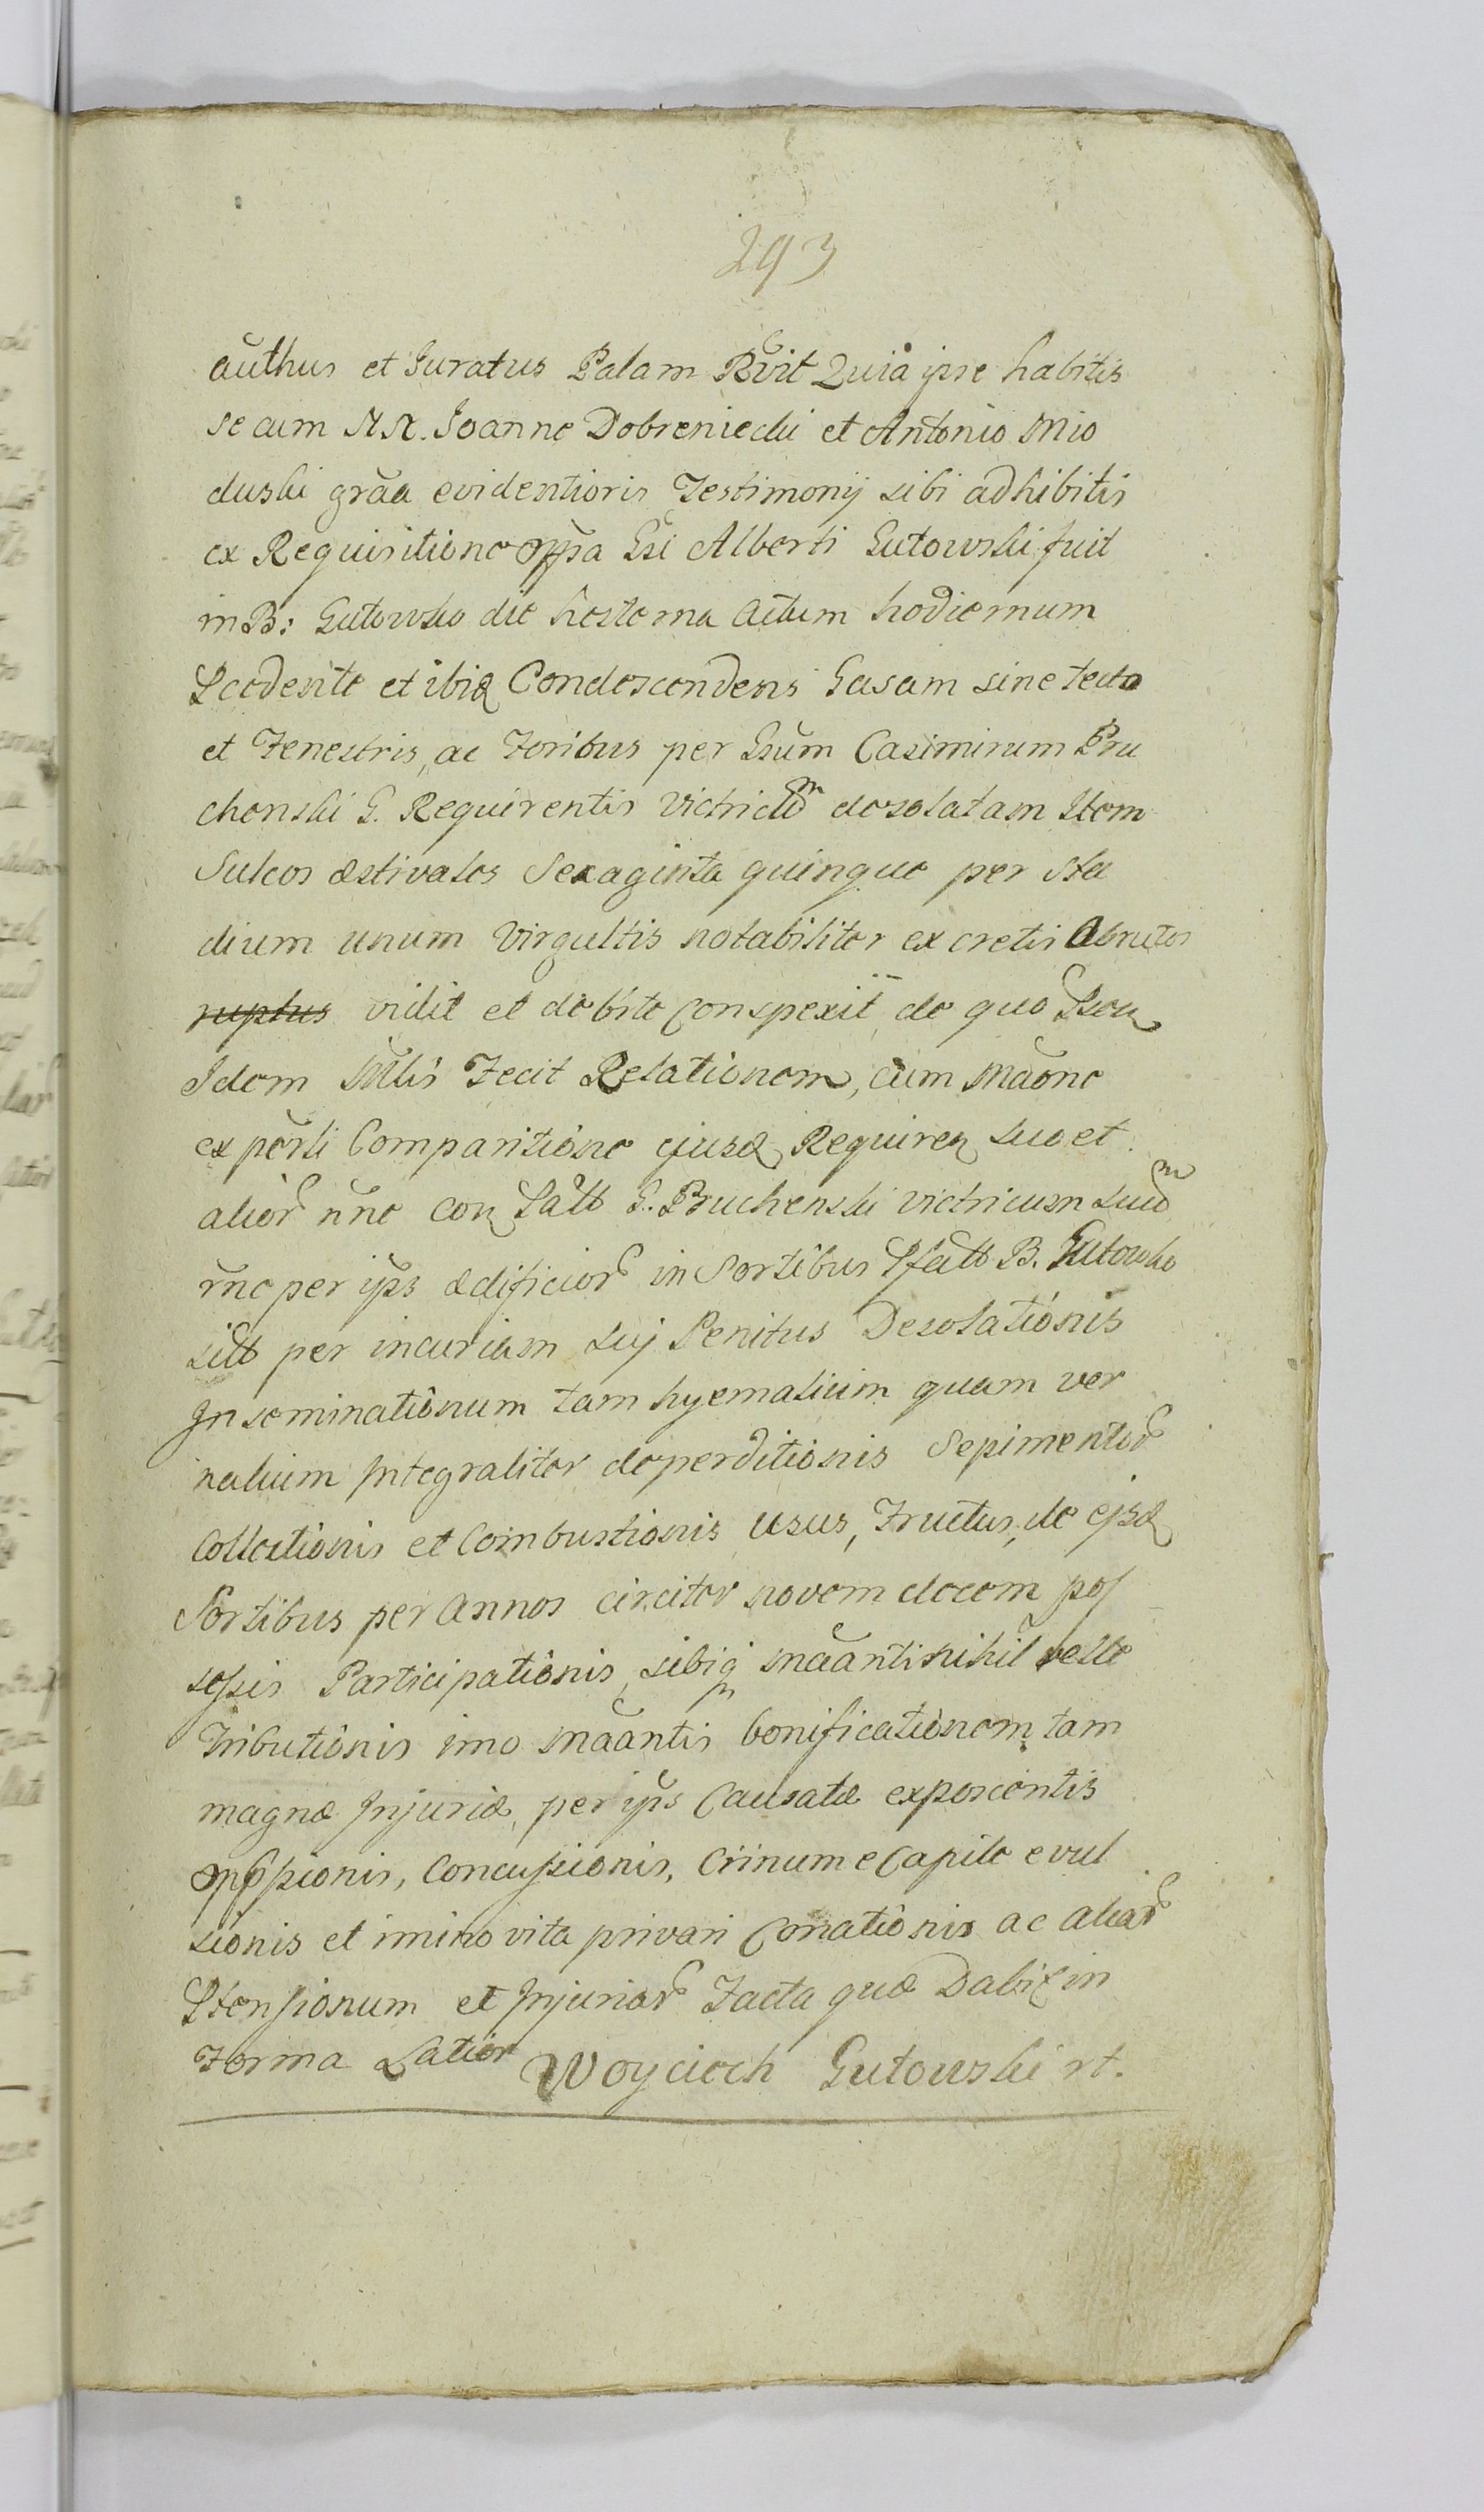 293
authus et Juratus Palam Rvit Quia ipse habitis
secum NN. Joanne Dobreniecki et Antonio Mio
duski grãa evidentioris Testimonij sibi adhibitis
ex Requisitione Gsi Alberti Gutowski fuit
in B: Gutowsko die hesterna Actum hodiernum
Pcedente et ibiq Condescendens Casam sine tecto
et Fenestris, ac Foribus per Gsum Casimirum Pru
chenski G. Requirentis victricũ desolatam Item
Sulcos æstivales Sexaginta quinque per Sta
dium unum Virgultis notabiliter excretis Obrutos
ruptus vidit et debite conspexit de quo
Idem Mlis Fecit Relationem, cum Mãone
ex pãrti Comparitione ejusq Requiren suo et
alior nne con Pãtt G. Pruchenski victricum suũ
rne per ips ædificior in Sortibus Pfatt B. Gutowsko
sitt per incuriam sui Penitus Desolationis
Inseminationum tam hyemalium quam ver
nalium Integraliter deperditionis Sepimentor
Collectionis et Combustionis usus, Fructus, de ejsq
Sortibus per Annos circiter novem decem pos
sessis Participationis, sibiq mãanti nihil velle
Tributionis imo mãantis bonificationem tam
magnæ Injuriæ, per ips Causatæ exposcentis
Oppssionis, Concussionis, Crinum e Capite evul
sionis et imino vita privari Conationis ac aliar
Ptensionum et Injuriar Facta quæ Dabit in
Forma Latior Woyciech Gutowski rt.